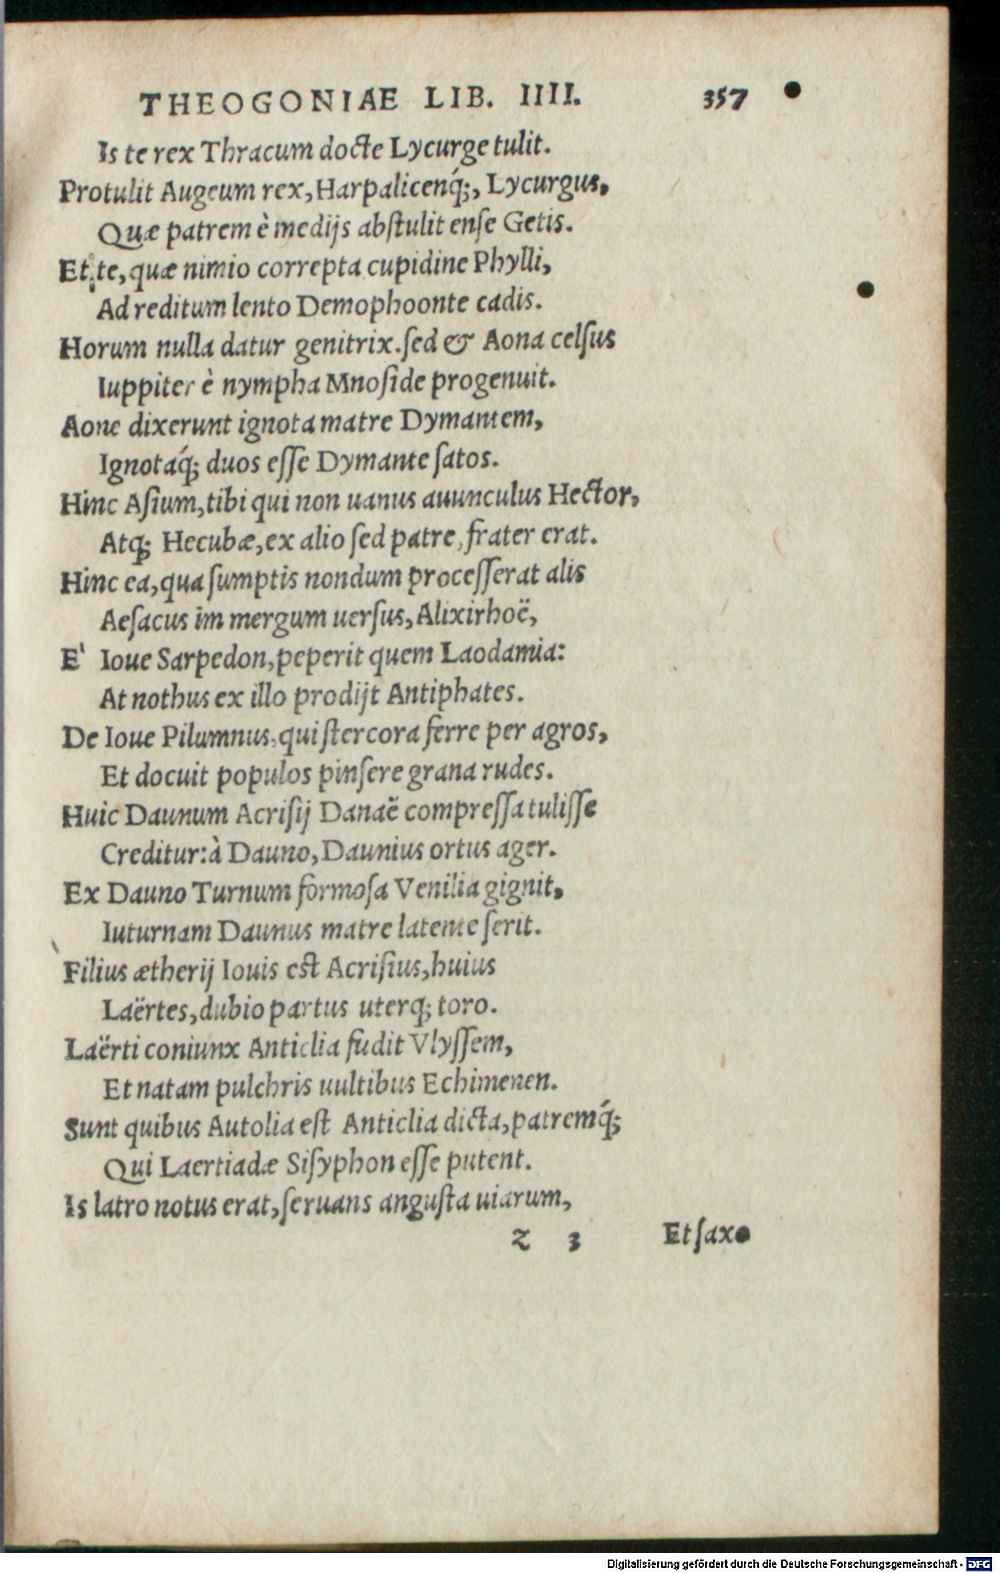 THEOGONIAE LIB. IIII. 357
Is te rex Thracum docte Lycurge tulit.
Protulit Augeum rex, Harpalicenq́;, Lycurgus,
Quæ patrem è medijs abſtulit enſe Getis.
Et te, quæ nimio correpta cupidine Phylli,
Ad reditum lento Demophoonte cadis.
Horum nulla datur genitrix. ſed & Aona celſus
Iuppiter è nympha Mnoſide progenuit.
Aone dixerunt ignota matre Dymantem,
Ignotaq́; duos eſſe Dymante ſatos.
Hinc Aſium, tibi qui non uanus auunculus Hector,
Atq; Hecubæ, ex alio ſed patre, frater erat.
Hinc ea, qua ſumptis nondum proceſſerat alis
Aeſacus im mergum uerſus, Alixirhoë,
E' Ioue Sarpedon, peperit quem Laodamia:
At nothus ex illo prodijt Antiphates.
De Ioue Pilumnus, qui ſtercora ferre per agros,
Et docuit populos pinſere grana rudes.
Huic Daunum Acriſij Danaë compreſſa tuliſſe
Creditur: à Dauno, Daunius ortus ager.
Ex Dauno Turnum formoſa Venilia gignit,
Iuturnam Daunus matre latente ſerit.
Filius ætherij Iouis eſt Acriſius, huius
Laërtes, dubio partus uterq; toro.
Laërti coniunx Anticlia fudit Vlyſſem,
Et natam pulchris uultibus Echimenen.
Sunt quibus Autolia eſt Anticlia dicta, patremq́;
Qui Laertiadæ Siſyphon eſſe putent.
Is latro notus erat, ſeruans anguſta uiarum,
Z 3 Et ſaxo
Digitalisierung gefördert durch die Deutsche Forschungsgemeinschaft - DFG